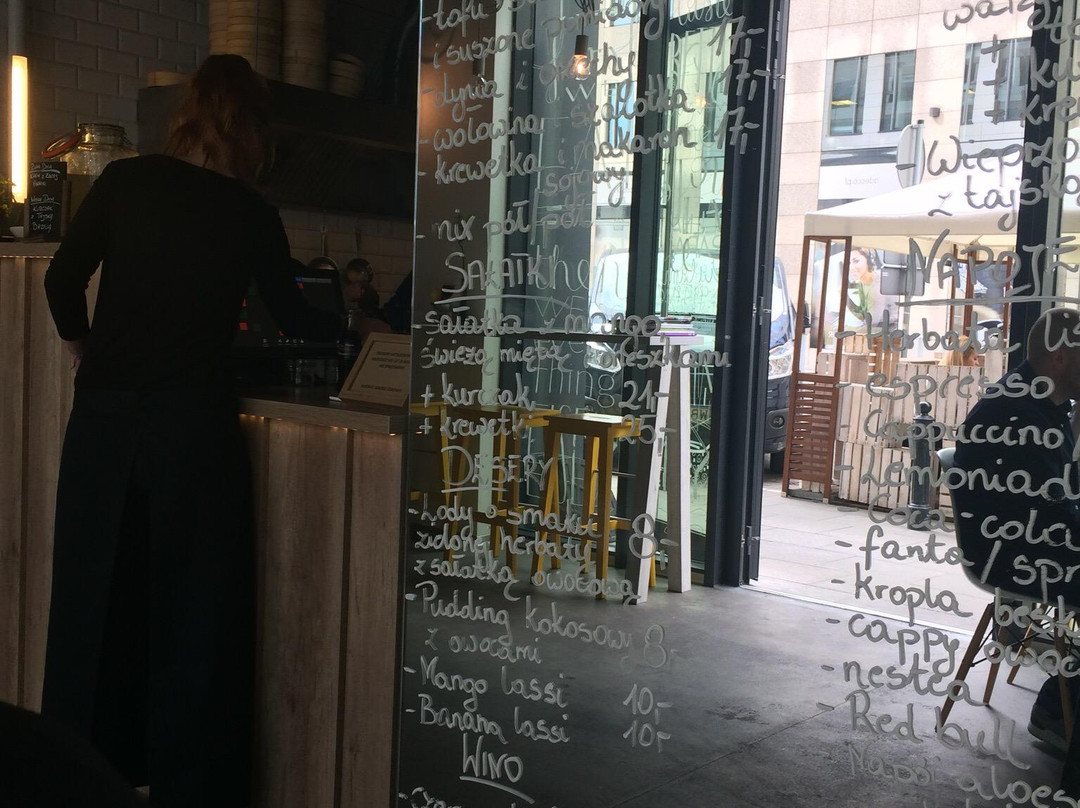 - tofu
i suszone pomidory 17,-
- dynia i grzyby 17,-
- wołowina szalotka
- krewetka i makaron 17,-
sojowy
- mix pół-pół
SAŁATKI
- Sałatka z mango
świeżą miętą orzeszkami
+ kurczak 21,-
+ krewetki 25,-
DESERY
- Lody o smaku
zielonej herbaty 8-
z sałatką owocową
- Pudding kokosowy 8-
z owocami
- Mango lassi 10,-
- Banana lassi 10,-
WINO
+ ku
+ kre
- Wieprzo
z tajsk
NAPOJE
- Herbata liś
- espresso
- Cappuccino
- Lemoniad
- Coca-cola
- fanta / spr
- Kropla besk
- cappy owoc
- nestea
- Red bull
Napój aloes